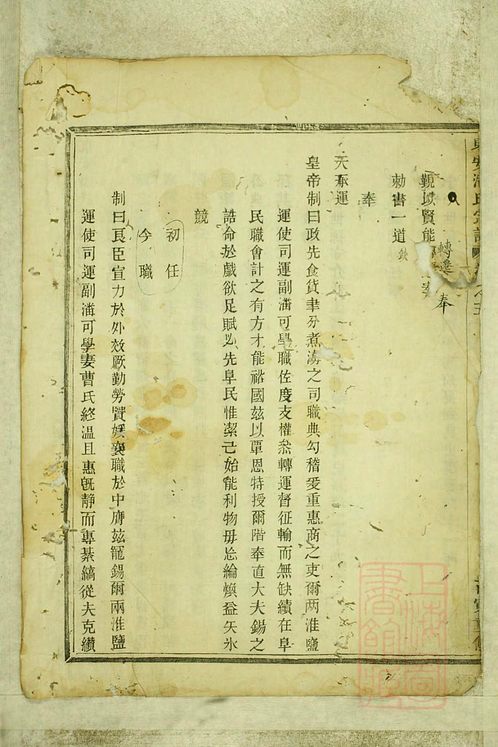 覲以賢能
轉運
奉
勅書一道
奉
天承運
皇帝制曰政先食貨聿分煮海之司職典勾稽爰重惠商之吏爾两淮鹽
運使司運副潘可學職佐度支權叅轉運督征輸而無缺績在阜
民職會計之有方才能裕國兹以覃恩特授爾階奉直大夫錫之
誥命於戲欲足賦必先阜民惟潔己始能利物毋忘綸煥益矢氷
兢
初任
今職
制曰良臣宣力於外效厥勤勞賢媛襄職於中膺兹寵錫爾兩淮鹽
運使司運副潘可學妻曹氏終温且惠旣静而專綦縞從夫克績